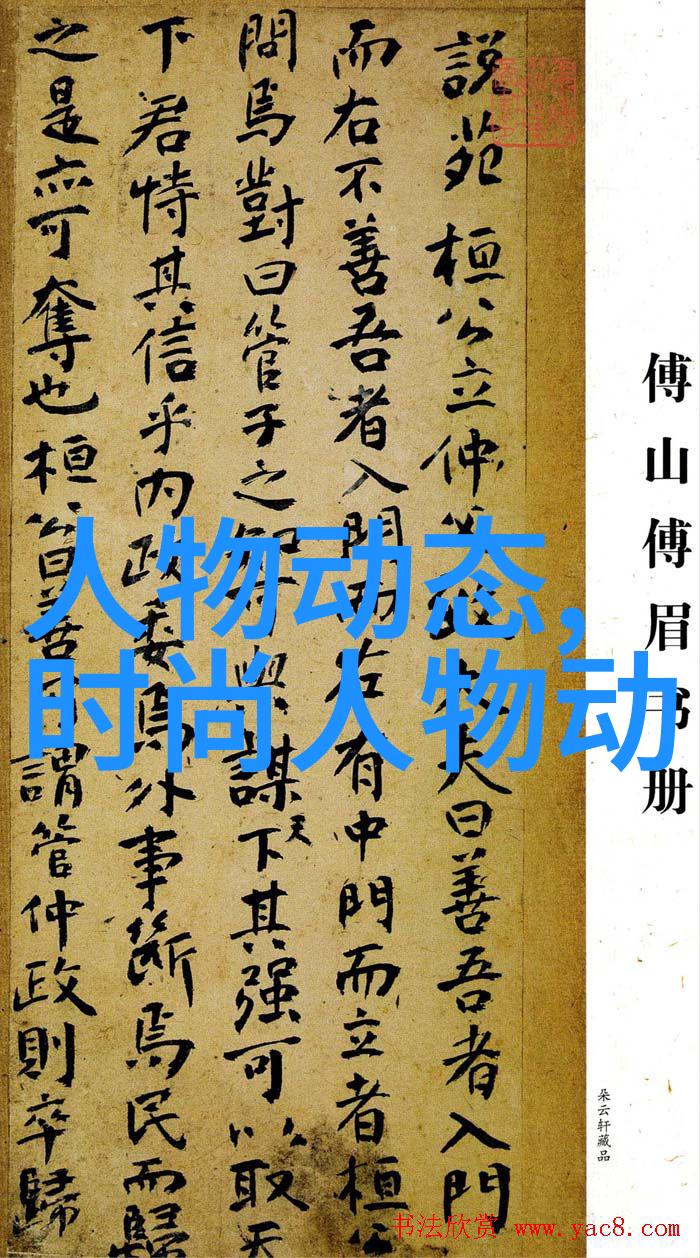 傅山傅眉书册
朵云轩藏品
說苑 桓公立仲父致大夫曰善吾者入門
而右不善吾者入門而左有中門而立者桓公
問焉對曰管子之知可與謀天下其强可以取天
下君恃其信乎内政委焉外事斷焉民而歸
之是亦可奪也桓公曰善乃謂管仲政則卒歸
人物动态，
时尚人物动
书法欣赏 www.yac8.com